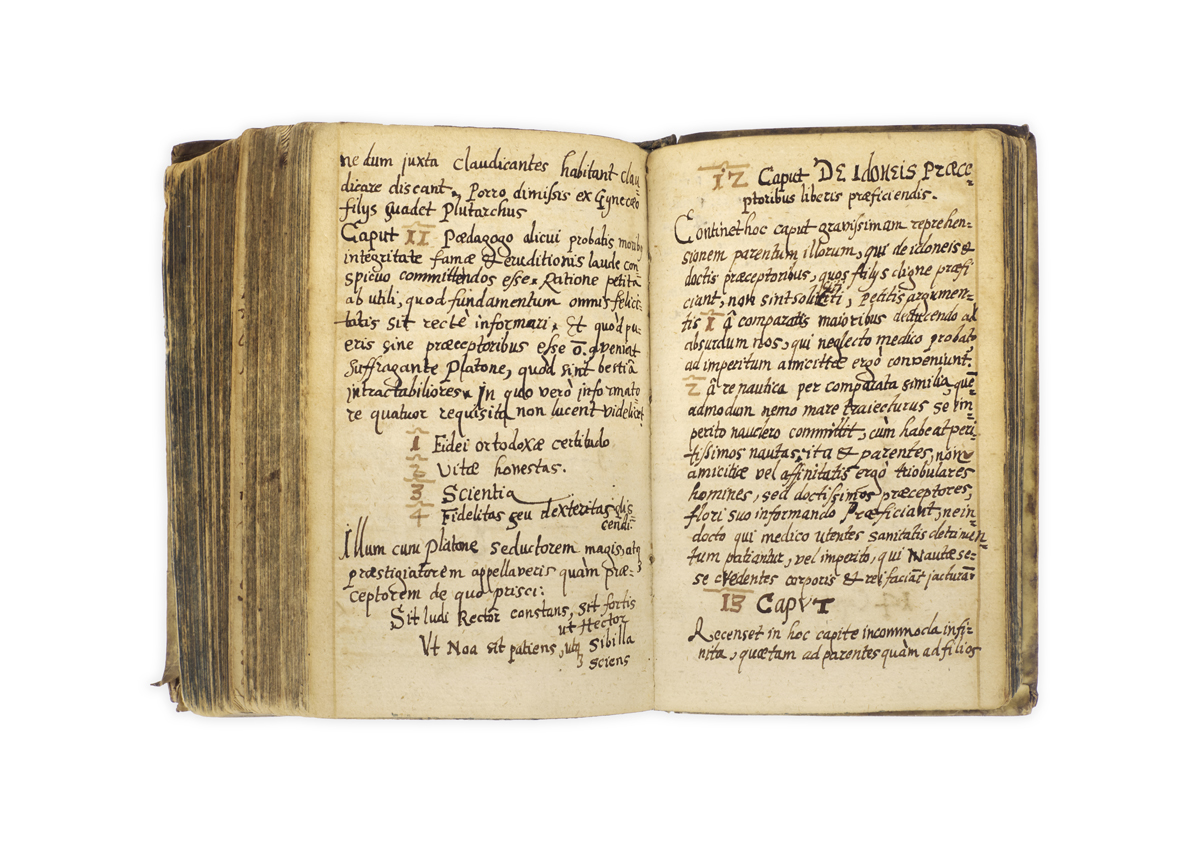 ne dum juxta claudicantes habitant clau-
dicare discant. Porro dimissis ex Gynecæo
filijs suadet Plutarchus
Caput II Pædagogo alicui probatis moribꝯ
integritate famæ & eruditionis laude con-
spicuo committendos esse. Ratione petitâ
ab utili, quod fundamentum omnis felici-
tatis sit rectè informari. Et quòd pu-
eris sine præceptoribus esse o̅. qveniat
Suffragante Platone, quòd sint bestiâ
intractabiliores. In quo verò informato-
re quatuor requisita non lucent videlicet
1 Fidei ortodoxæ certitudo
2 Vitæ honestas.
3 Scientia
4 Fidelitas seu dexteritas dis
cendi.
Illum cum Platone seductorem magis, atq3
præstigiatorem appellaveris quàm præ-
ceptorem de quo prisci:
Sit ludi Rector constans, sit fortis
ut Hector
Ut Noa sit patiens, utq3 Sibilla
sciens
12 Caput DE IdONEIS PRæCE-
ptoribus liberis præficiendis.
Continet hoc caput gravissimam reprehen-
sionem parentum illorum, qui de idoneis &
doctis præceptoribus, quos filijs digne præfi-
ciant, non sint soliciti, Petitis argumen-
tis 1 â comparatis maioribus deducendo ad
absurdum nos, qui neglecto medico probato
ad imperitum amicitiæ ergò conveniunt.
2 â re nautica per comparata similia, quē-
admodum nemo mare traiecturus se im-
perito nauclero committit, cùm habeat peri-
tissimos nautas, ita & parentes, non
amicitiæ vel affinitatis ergò triobulares
homines, sed doctissimos præceptores,
flori suo informando Præficiant, ne in-
docto qui medico utentes sanitatis detrimen-
tum patiantur, vel imperito, qui Nautæ se-
se credentes corporis & rei faciāt jacturam
13 CAPVT
Recenset in hoc capite incommoda infi-
nita, quæ tam ad parentes quàm ad filios